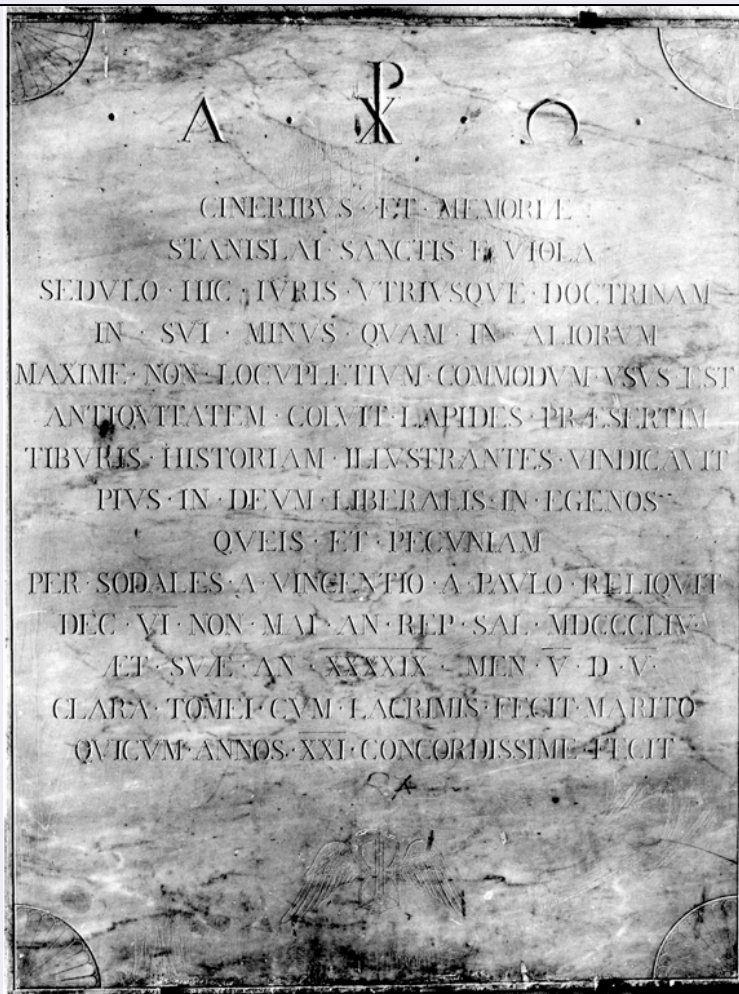 · Α · ☧ · Ω ·
CINERIBVS · ET · MEMORIÆ
STANISLAI · SANCTIS · E · VIOLA
SEDVLO · HIC · IVRIS · VTRIVSQVE · DOCTRINAM
IN · SVI · MINVS · QVAM · IN · ALIORVM
MAXIME · NON · LOCVPLETIVM · COMMODVM · VSVS · EST
ANTIQVITATEM · COLVIT · LAPIDES · PRÆSERTIM
TIBVRIS · HISTORIAM · ILLVSTRANTES · VINDICAVIT
PIVS · IN · DEVM · LIBERALIS · IN · EGENOS
QVEIS · ET · PECVNIAM
PER · SODALES · A · VINCENTIO · A · PAVLO · RELIQVIT
DEC · VI · NON · MAI · AN · REP · SAL · MDCCCLIV ·
ÆT · SVÆ · AN · XXXXIX · MEN · V · D · V ·
CLARA · TOMEI · CVM · LACRIMIS · FECIT · MARITO
QVICVM · ANNOS · XXI · CONCORDISSIME · FECIT